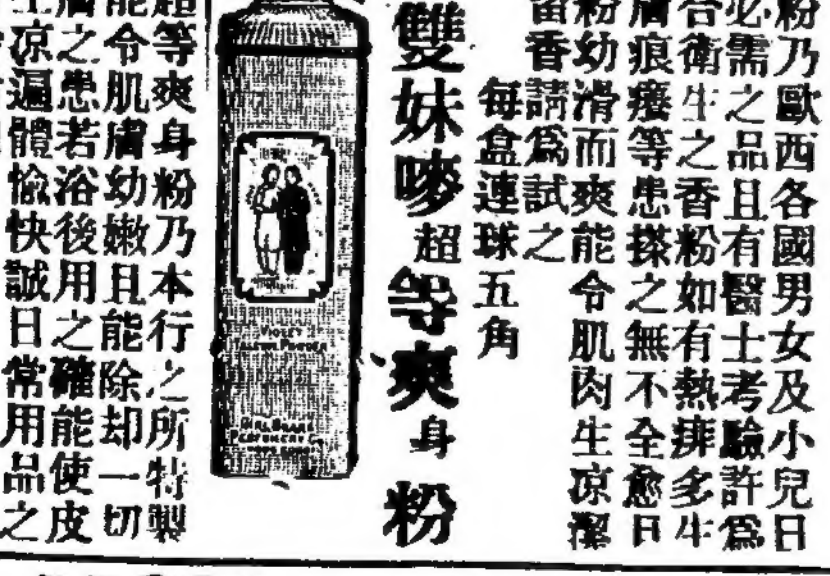 粉乃歐西各國男女及小兒日
必需之品且有醫士考驗許爲
合衛生之香粉如有熱痱多生
膚痕癢等患搽之無不全愈且
粉幼滑而爽能令肌肉生凉潔
留香請爲試之
每盒連球五角
雙妹嘜超等爽身粉
VIOLET
TALCUM POWDER
GIRL BRAND
PERFUMERY Co
HONG KONG
超等爽身粉乃本行之所特製
能令肌膚幼嫩且能除却一切
膚之患若浴後用之確能使皮
生凉遍體愉快誠日常用品之